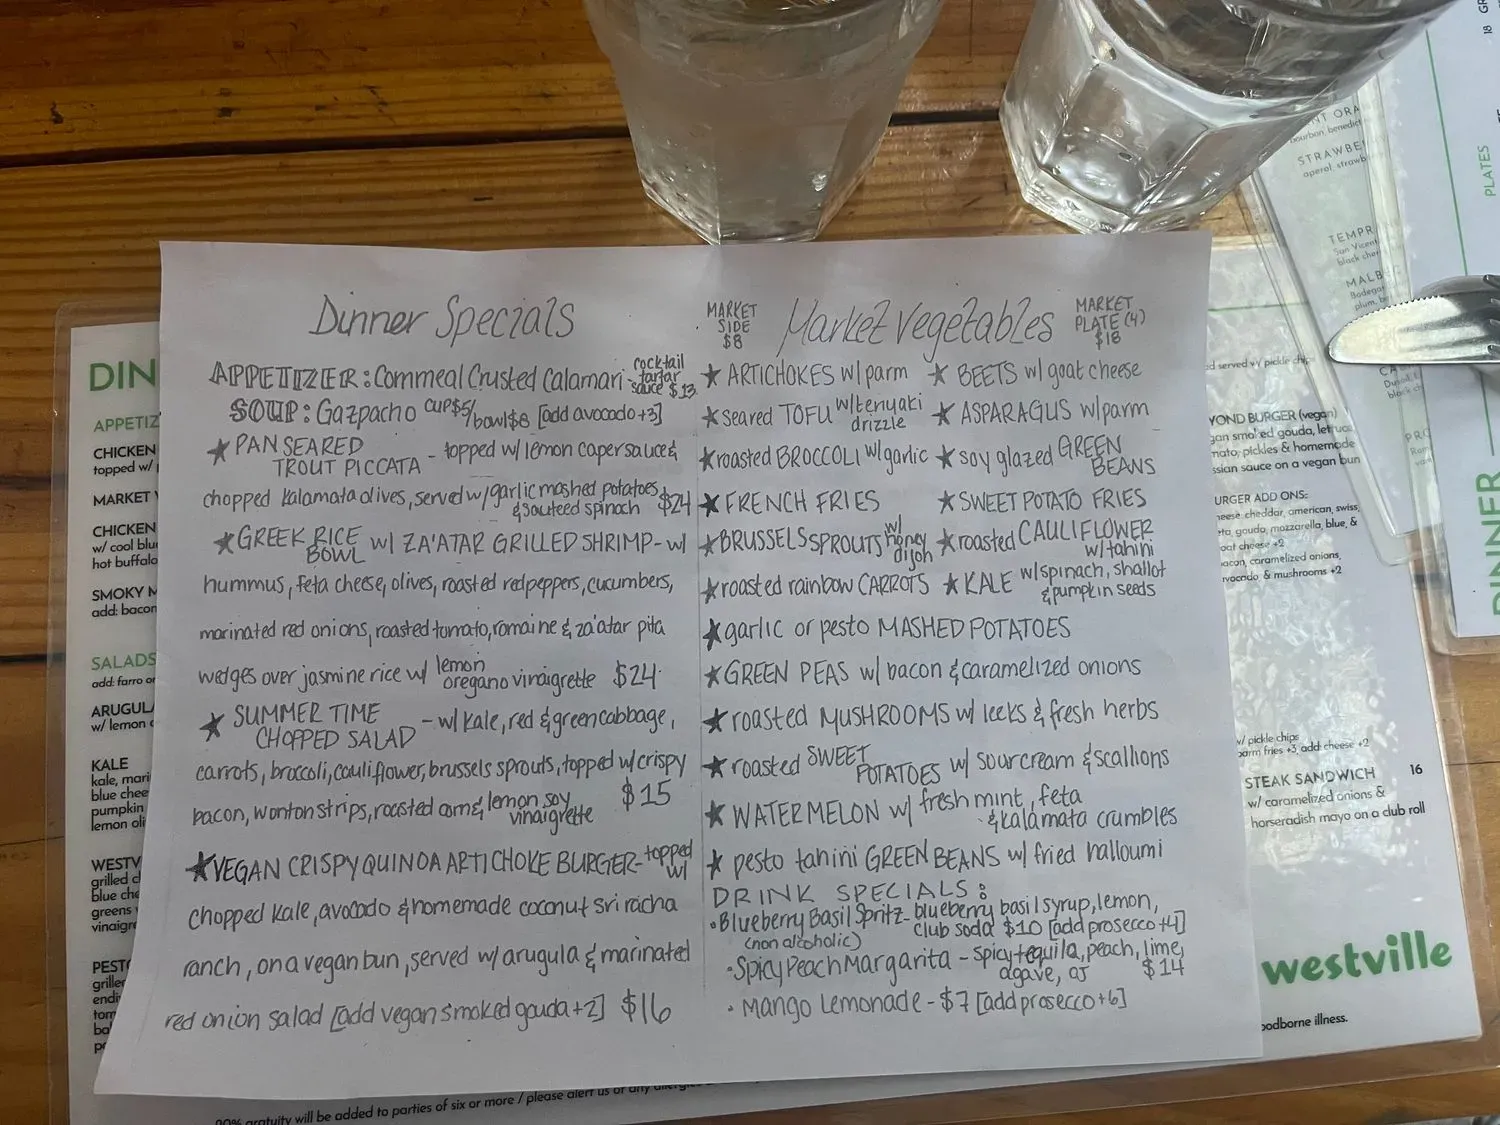 Dinner Specials
APPETIZER: Cornmeal Crusted Calamari - cocktail
tartar
sauce $13
SOUP: Gazpacho cup $5/bowl $8 [add avocado +3]
★ PAN SEARED
TROUT PICCATA - topped w/ lemon caper sauce &
chopped kalamata olives, served w/ garlic mashed potatoes
& sauteed spinach $24
★ GREEK RICE
BOWL w/ ZA'ATAR GRILLED SHRIMP - w/
hummus, feta cheese, olives, roasted red peppers, cucumbers,
marinated red onions, roasted tomato, romaine & za'atar pita
wedges over jasmine rice w/ lemon
oregano vinaigrette $24
★ SUMMER TIME
CHOPPED SALAD - w/ kale, red & green cabbage,
carrots, broccoli, cauliflower, brussels sprouts, topped w/ crispy
bacon, wonton strips, roasted corn & lemon soy
vinaigrette $15
★ VEGAN CRISPY QUINOA ARTICHOKE BURGER - topped
w/
chopped kale, avocado & homemade coconut sriracha
ranch, on a vegan bun, served w/ arugula & marinated
red onion salad [add vegan smoked gouda +2] $16
MARKET
SIDE
$8
Market Vegetables
MARKET
PLATE (4)
$18
★ ARTICHOKES w/ parm ★ BEETS w/ goat cheese
★ seared TOFU w/ teriyaki
drizzle ★ ASPARAGUS w/ parm
★ roasted BROCCOLI w/ garlic ★ soy glazed GREEN
BEANS
★ FRENCH FRIES ★ SWEET POTATO FRIES
★ BRUSSELS SPROUTS w/
honey
dijon ★ roasted CAULIFLOWER
w/ tahini
★ roasted rainbow CARROTS ★ KALE w/ spinach, shallot
& pumpkin seeds
★ garlic or pesto MASHED POTATOES
★ GREEN PEAS w/ bacon & caramelized onions
★ roasted MUSHROOMS w/ leeks & fresh herbs
★ roasted SWEET
POTATOES w/ sour cream & scallions
★ WATERMELON w/ fresh mint, feta
& kalamata crumbles
★ pesto tahini GREEN BEANS w/ fried halloumi
DRINK SPECIALS:
• Blueberry Basil Spritz - blueberry basil syrup, lemon,
(non alcoholic) club soda $10 [add prosecco +4]
• Spicy Peach Margarita - spicy tequila, peach, lime,
agave, oj $14
• Mango Lemonade - $7 [add prosecco +6]
DIN
APPETIZ
CHICKEN
topped w/
MARKET
CHICKEN
w/ cool blu
hot buffalo
SMOKY M
add: bacon
SALADS
add: farro or
ARUGULA
w/ lemon
KALE
kale, mari
blue chee
pumpkin
lemon oli
WESTV
grilled ch
blue che
greens
vinaigre
PESTO
griller
endi
tom
served w/ pickle chip
YOND BURGER (vegan)
gan smoked gouda, lettuce
mato, pickles & homemade
ssian sauce on a vegan bun
URGER ADD ONS:
eese: cheddar, american, swiss,
ta, gouda, mozzarella, blue, &
oat cheese +2
acon, caramelized onions,
vocado & mushrooms +2
w/ pickle chips
parm fries +3, add: cheese +2
STEAK SANDWICH 16
w/ caramelized onions &
horseradish mayo on a club roll
westville
oodborne illness.
gratuity will be added to parties of six or more / please alert us of any allergies
NT ORA
bourbon, benedict
STRAWBE
aperol, strawb
TEMPR
San Vicen
black cher
MALB
Bodega
plum, b
PLATES
DINNER
18 GR